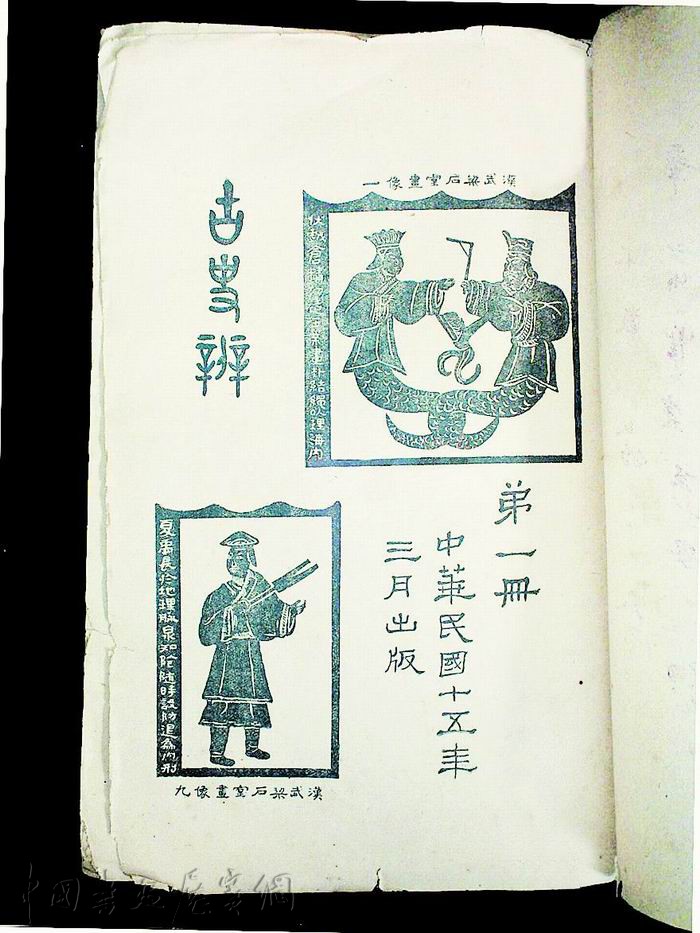 漢武梁石室畫像一
伏戲倉精初造王業畫卦結繩以理海内
古史辨
弟一冊
中華民國十五年
三月出版
夏禹長於地理脉泉知陰隨時設防退為肉刑
漢武梁石室畫像九